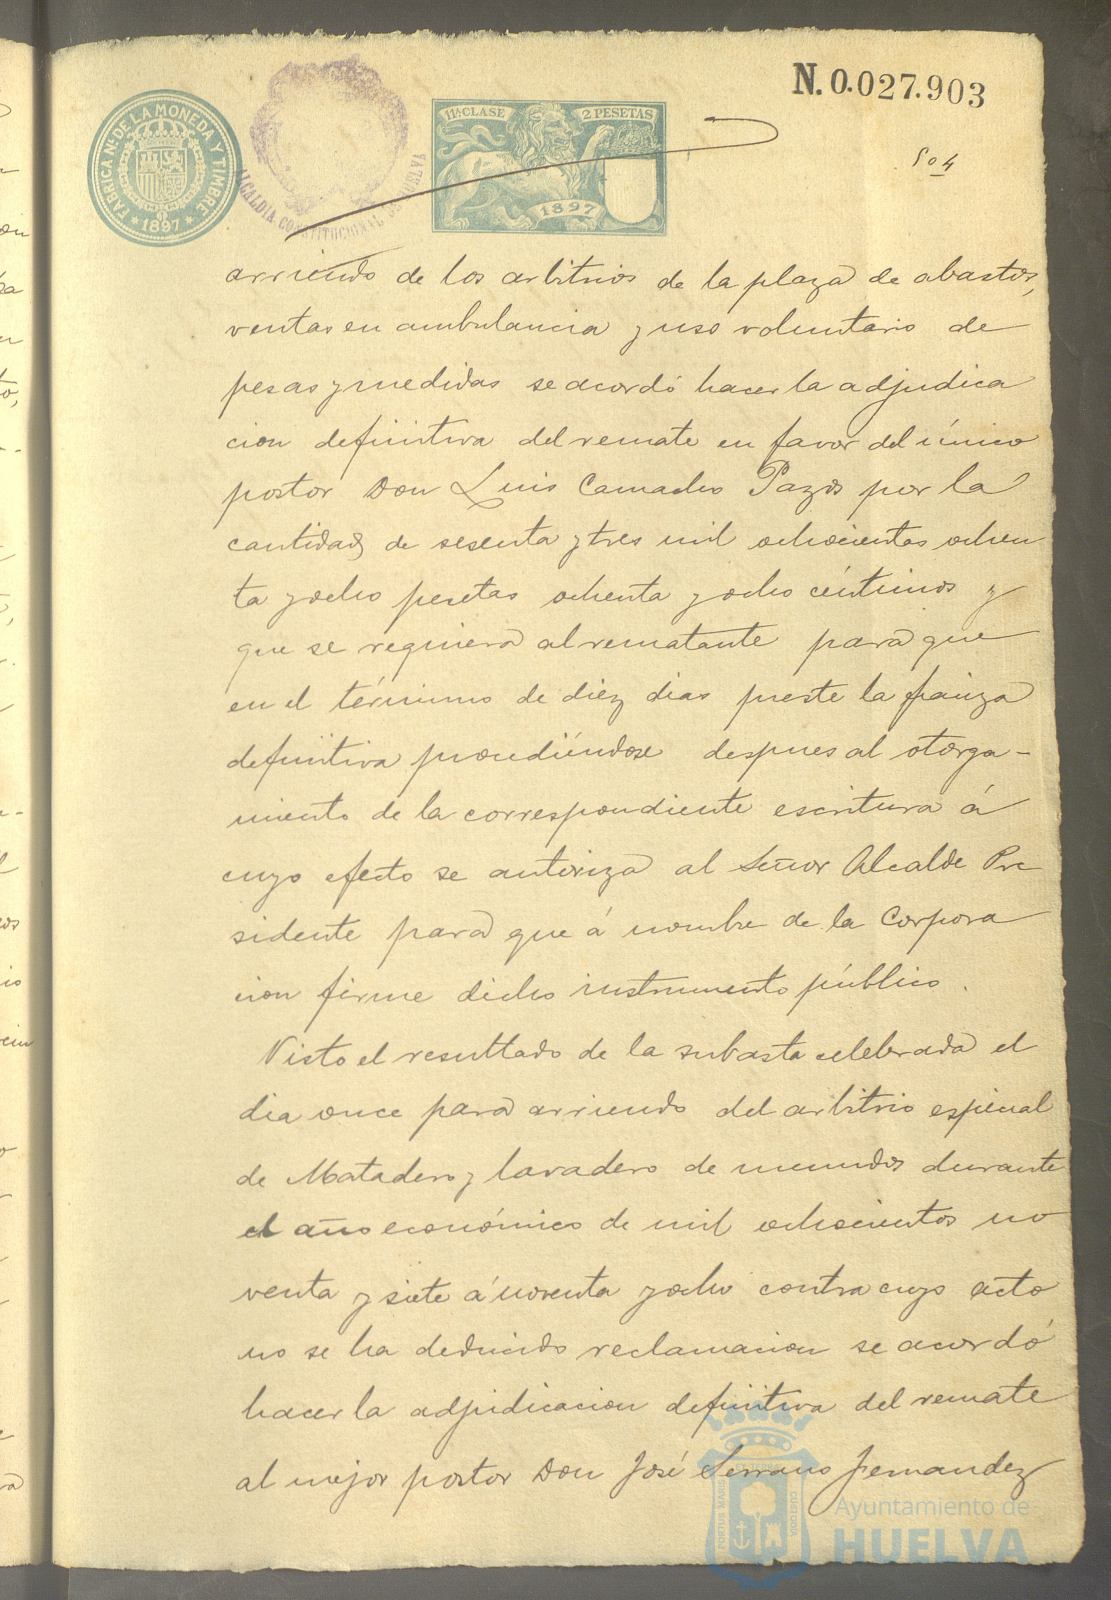 N.0.027.903
504
FÁBRICA NL. DE LA MONEDA Y TIMBRE
* 1897 *
ALCALDIA CONSTITUCIONAL
11ª CLASE
2 PESETAS
1897
arriendo de los arbitrios de la plaza de abastos,
ventas en ambulancia y uso voluntario de
pesas y medidas se acordó hacer la adjudica
cion definitiva del remate en favor del único
postor Don Luis Camacho Pazos por la
cantidad de sesenta y tres mil ochocientas ochen
ta y ocho pesetas ochenta y ocho céntimos y
que se requiera al rematante para que
en el término de diez dias preste la fianza
definitiva procediéndose despues al otorga-
miento de la correspondiente escritura á
cuyo efecto se autoriza al Señor Alcalde Pre
sidente para que á nombre de la Corpora
cion firme dicho instrumento público.
Visto el resultado de la subasta celebrada el
dia once para arriendo del arbitrio especial
de Matadero y lavadero de menudos durante
el año económico de mil ochocientos no
venta y siete á noventa y ocho contra cuyo acto
no se ha deducido reclamacion se acordó
hacer la adjudicacion definitiva del remate
al mejor postor Don José Serrano Fernandez
PORTUS MARIS
CUSTODIA
Ayuntamiento de
HUELVA